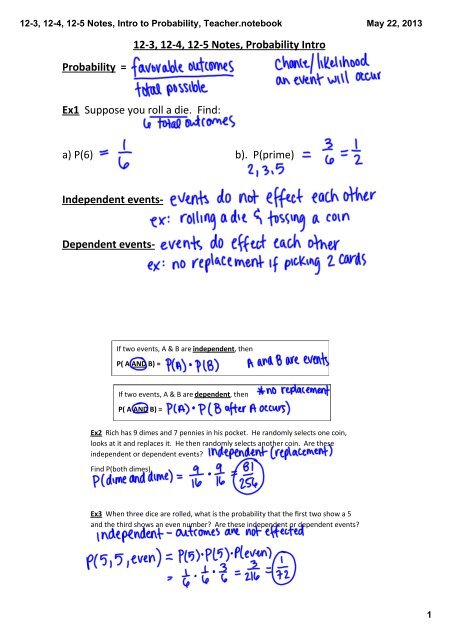 12-3, 12-4, 12-5 Notes, Intro to Probability, Teacher.notebook May 22, 2013
12-3, 12-4, 12-5 Notes, Probability Intro
Probability = favorable outcomes / total possible
Chance/likelihood
an event will occur
Ex1 Suppose you roll a die. Find:
6 total outcomes
a) P(6) = 1/6 b). P(prime) = 3/6 = 1/2
2,3,5
Independent events- events do not effect each other
ex: rolling a die & tossing a coin
Dependent events- events do effect each other
ex: no replacement if picking 2 cards
If two events, A & B are independent, then
P( A AND B) = P(A) • P(B) A and B are events
If two events, A & B are dependent, then *no replacement
P( A AND B) = P(A) • P(B after A occurs)
Ex2 Rich has 9 dimes and 7 pennies in his pocket. He randomly selects one coin,
looks at it and replaces it. He then randomly selects another coin. Are these
independent or dependent events? Independent (replacement)
Find P(both dimes).
P(dime and dime) = 9/16 • 9/16 = 81/256
Ex3 When three dice are rolled, what is the probability that the first two show a 5
and the third shows an even number? Are these independent or dependent events?
independent - outcomes are not effected
P(5,5,even) = P(5)•P(5)•P(even)
= 1/6 • 1/6 • 3/6 = 3/216 = 1/72
1